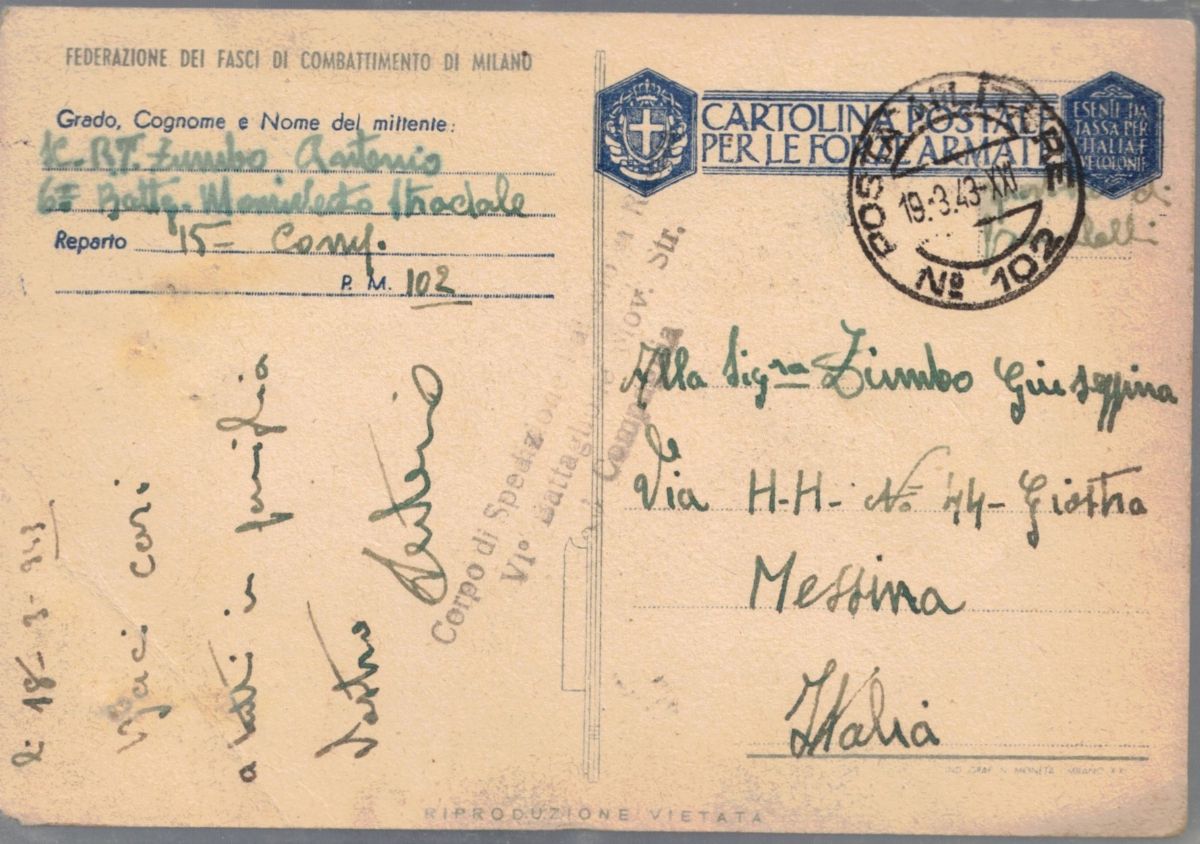 FEDERAZIONE DEI FASCI DI COMBATTIMENTO DI MILANO
Grado, Cognome e Nome del mittente:
Zumbo Antonio
6° Battg. Stradale
Reparto 15-
P. M. 102
CARTOLINA POSTALE
PER LE FORZE ARMATE
ESENTE DA
TASSA PER
L'ITALIA E
LE COLONIE
POSTA MILITARE
19.3.43-XXI
Nº 102
Corpo di Spedizione
VIº Battagl Mov. Str.
Compagnia
Alla Sigra Zumbo Giuseppina
Via H-H- No 44- Giostra
Messina
Italia
18-3-
Baci cari
a tutti in famiglia
Vostro Antonio
IND. GRAF. N. MONETA - MILANO XXI
RIPRODUZIONE VIETATA